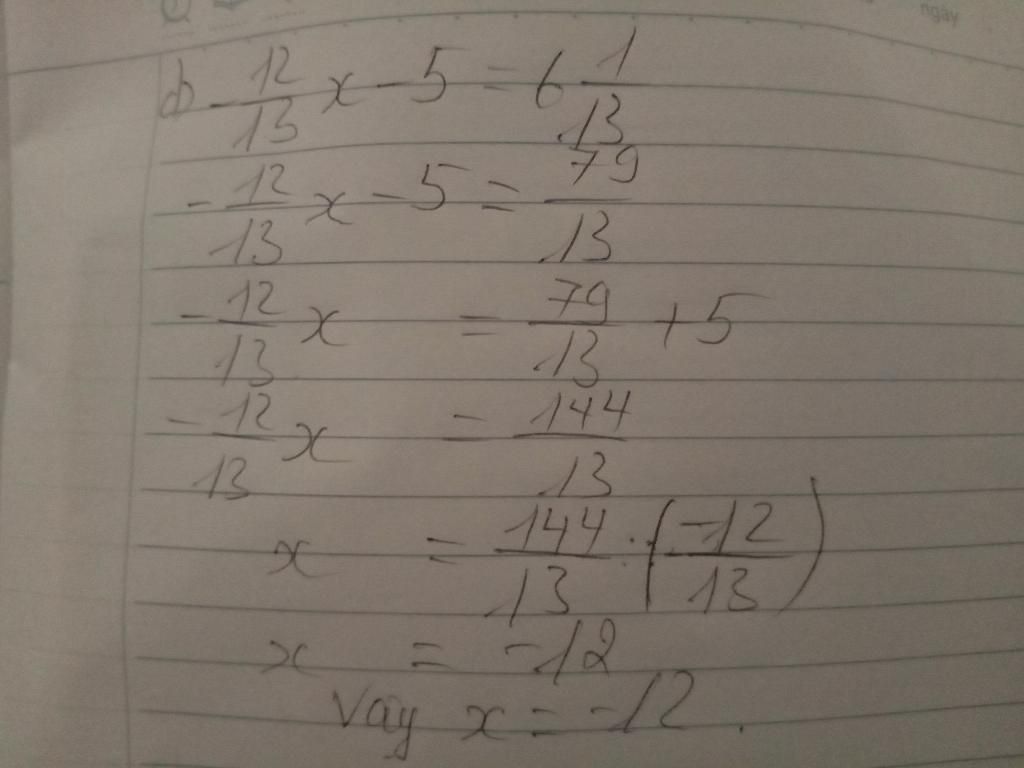 b) -12/13 x - 5 = 6 1/13
-12/13 x - 5 = 79/13
-12/13 x = 79/13 + 5
-12/13 x = 144/13
x = 144/13 : (-12/13)
x = -12
Vậy x = -12.
ngày